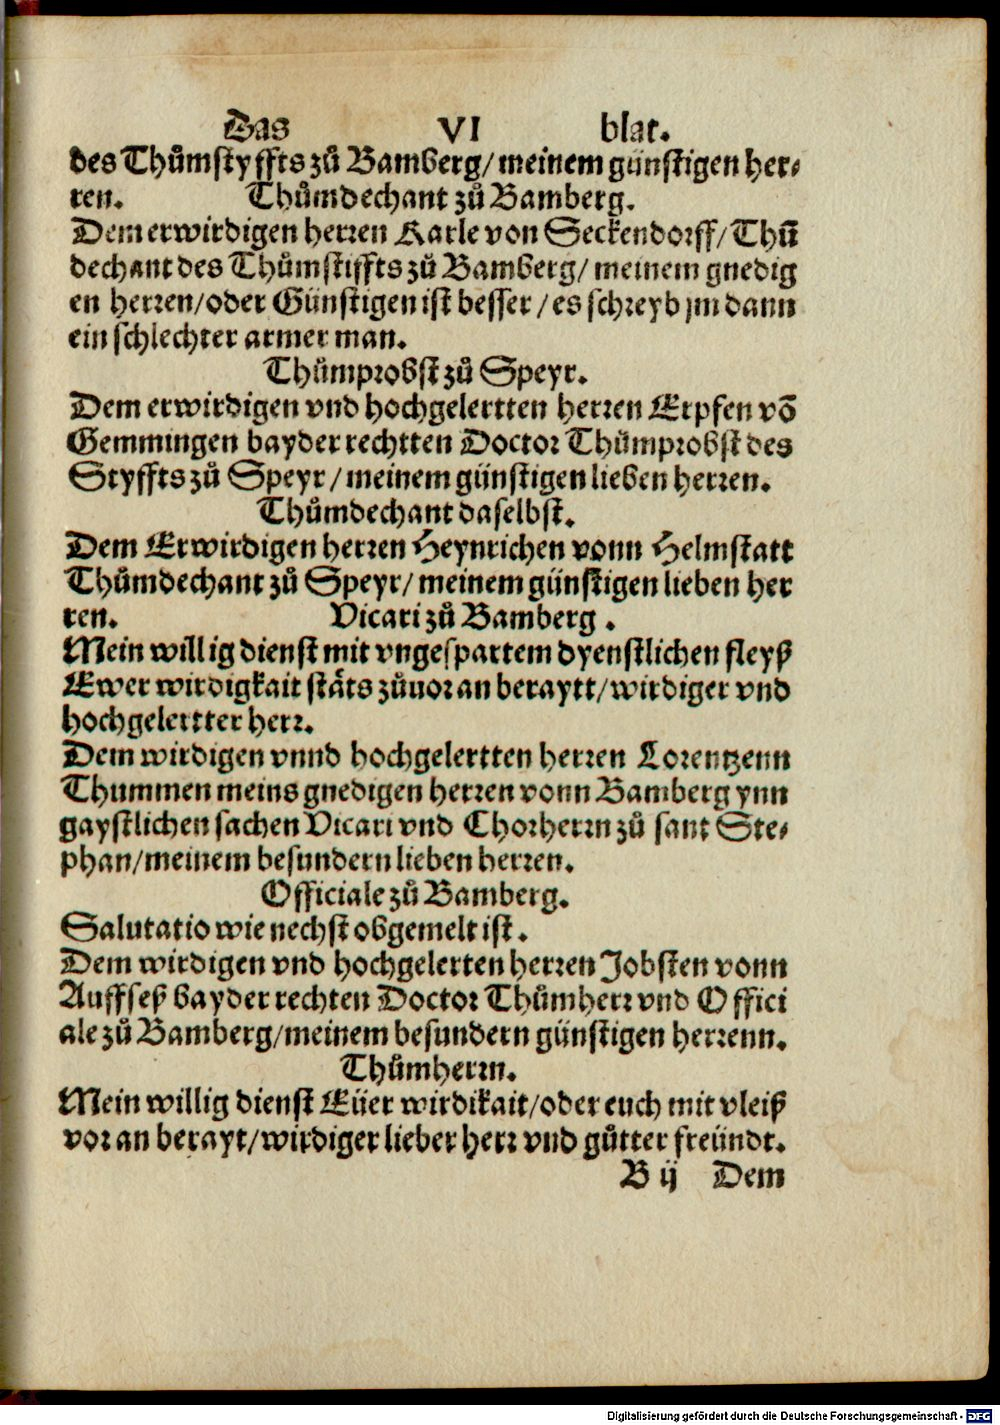 Das VI blat.
des Thůmstyffts zů Bamberg/ meinem günstigen her⸗
ren. Thůmdechant zů Bamberg.
Dem erwirdigen herren Karle von Seckendorff/ Thů̄
dechant des Thůmstiffts zů Bamberg/ meinem gnedig
en herren/oder Günstigen ist besser/ es schreyb jm dann
ein schlechter armer man.
Thůmprobst zů Speyr.
Dem erwirdigen vnd hochgelertten herren Erpfen vō
Gemmingen bayder rechtten Doctor Thůmprobst des
Styffts zů Speyr/ meinem günstigen lieben herren.
Thůmdechant daselbst.
Dem Erwirdigen herren Heynrichen vonn Helmstatt
Thůmdechant zů Speyr/ meinem günstigen lieben her
ren. Vicari zů Bamberg.
Mein willig dienst mit vngespartem dyenstlichen fleyß
Ewer wirdigkait stäts zůuor an beraytt/ wirdiger vnd
hochgelertter herr.
Dem wirdigen vnnd hochgelertten herren Lorentzenn
Thummen meins gnedigen herren vonn Bamberg ynn
gaystlichen sachen Vicari vnd Chorherrn zů sant Ste⸗
phan/meinem besundern lieben herren.
Officiale zů Bamberg.
Salutatio wie nechst obgemelt ist.
Dem wirdigen vnd hochgelerten herren Jobsten vonn
Auffseß bayder rechten Doctor Thůmherr vnd Offici
ale zů Bamberg/meinem besundern günstigen herrenn.
Thůmherrn.
Mein willig dienst Eüer wirdikait/oder euch mit vleiß
vor an berayt/wirdiger lieber herr vnd gůtter freündt.
B ij Dem
Digitalisierung gefördert durch die Deutsche Forschungsgemeinschaft - DFG